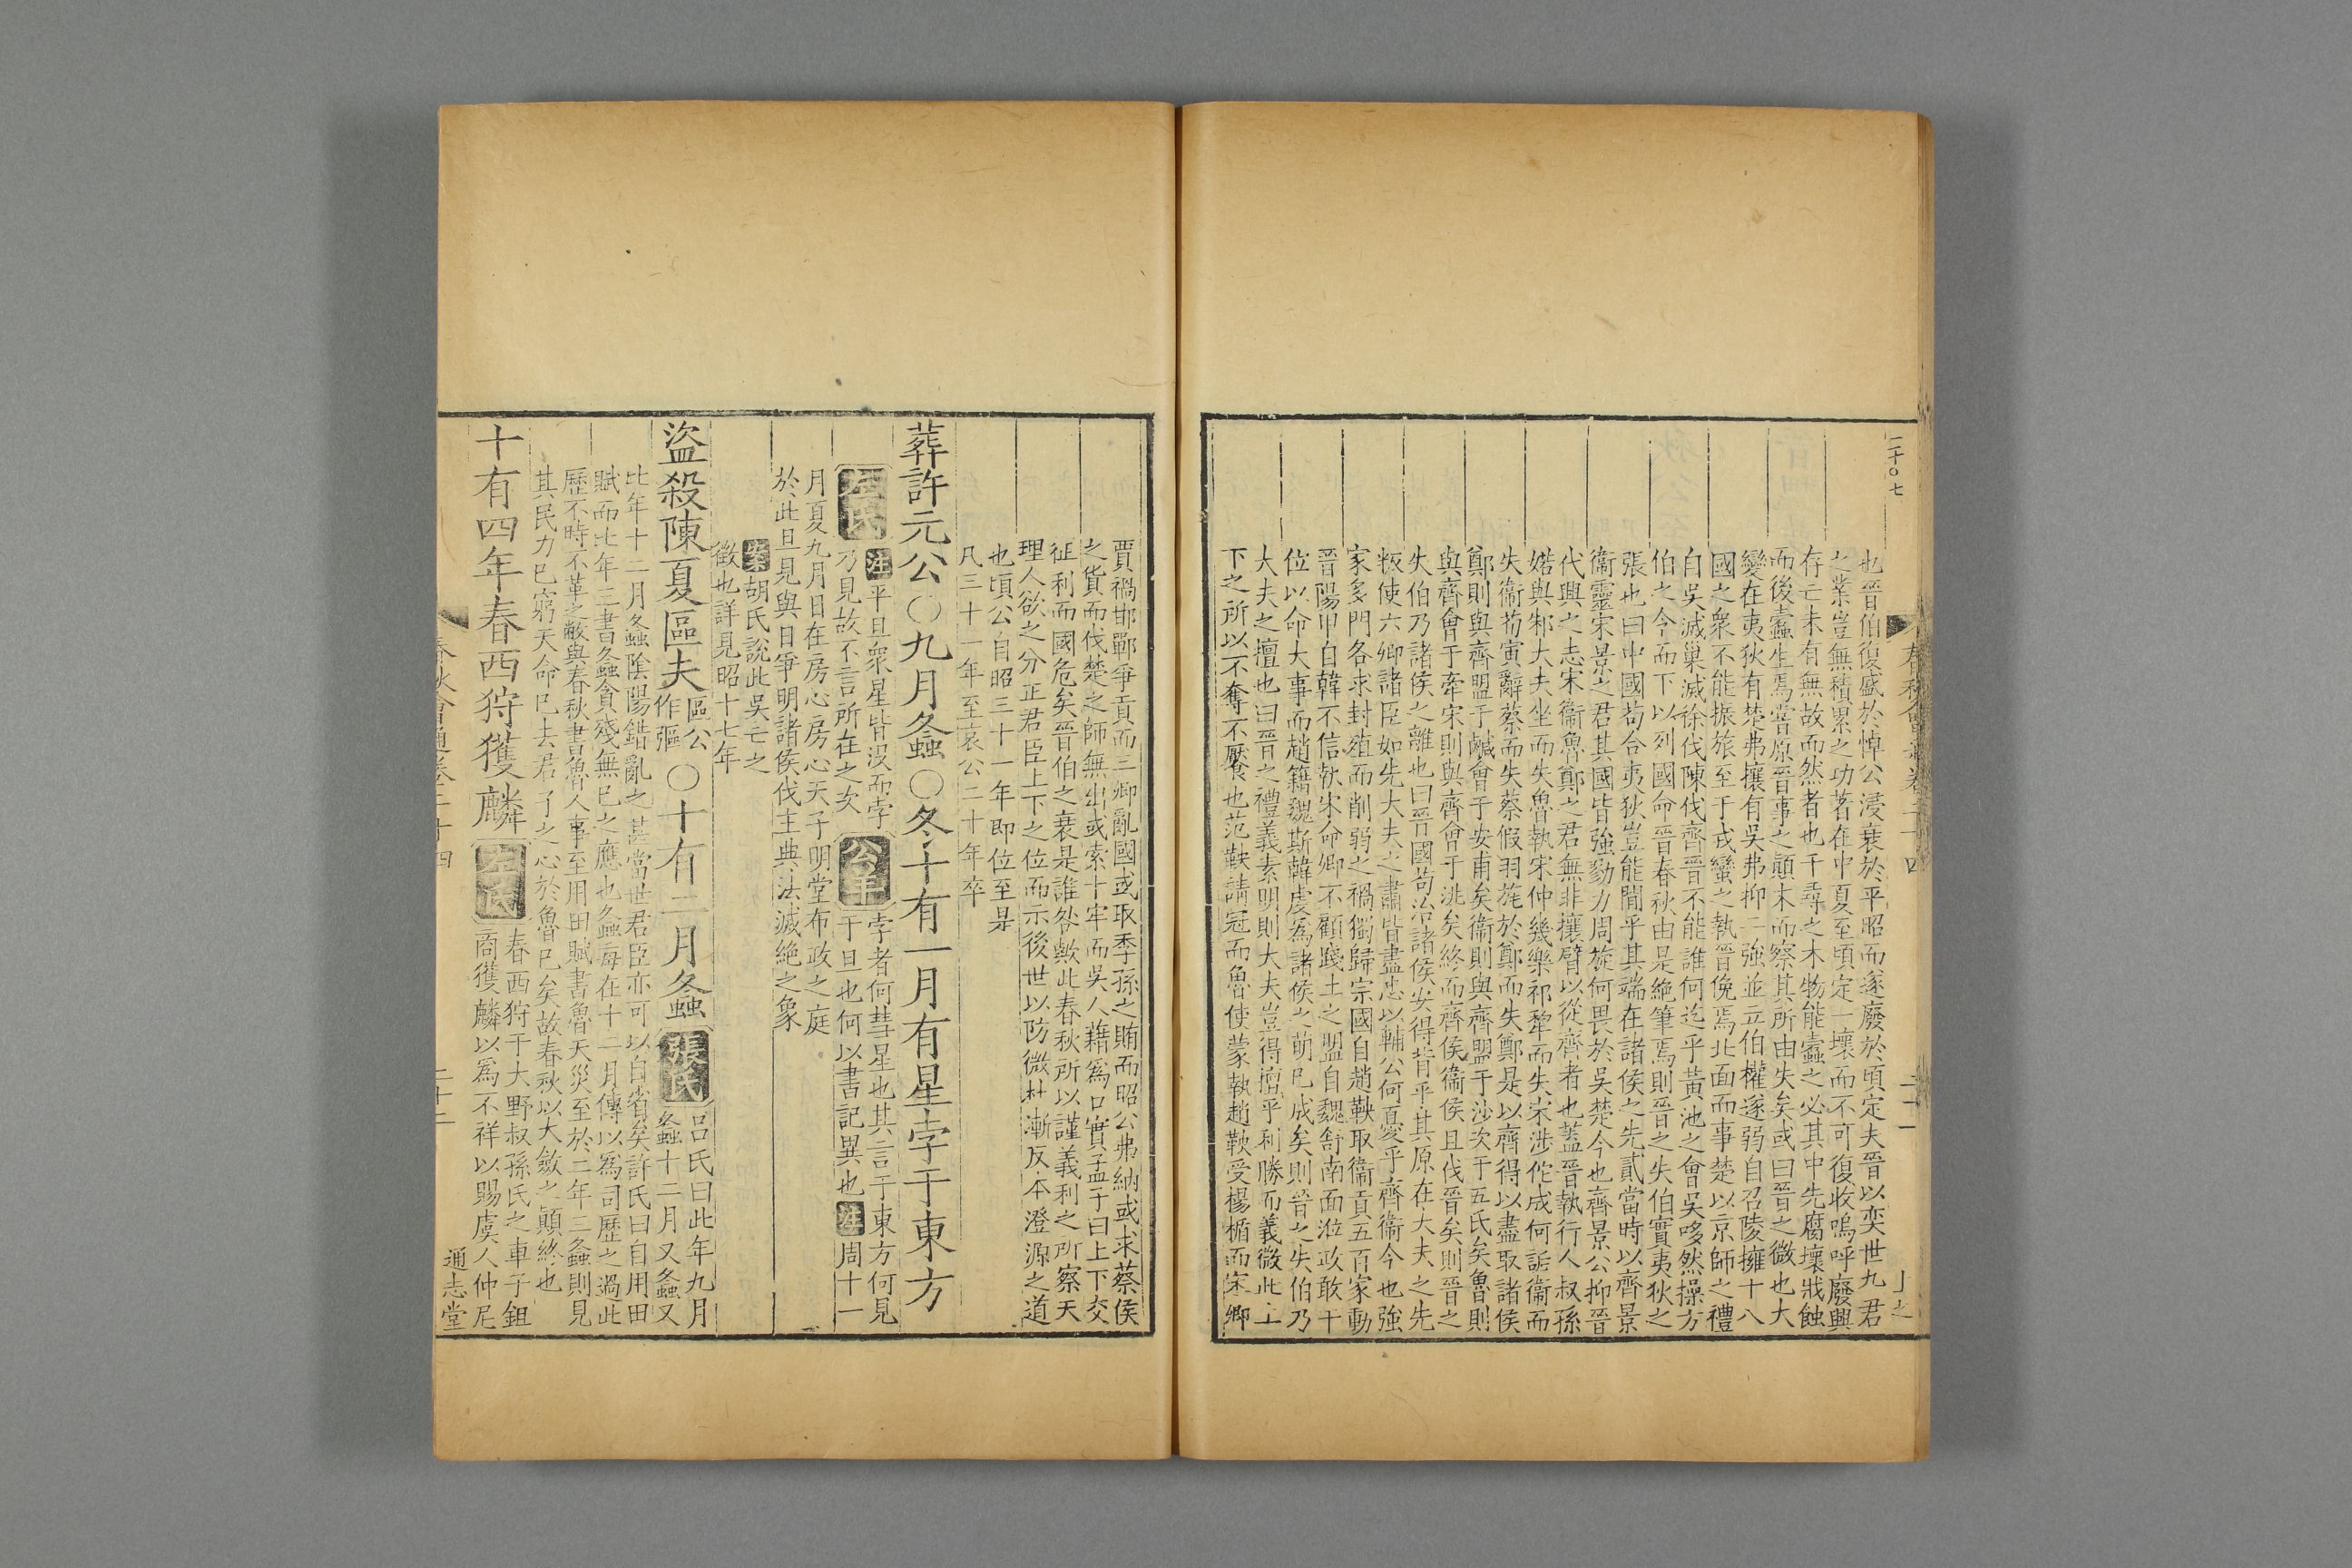 二十〇七
春秋會通卷二十四
二十一
也晉伯復盛於悼公浸衰於平昭而遂廢於頃定夫晉以奕世九君
之業豈無積累之功著在中夏至頃定一壞而不可復收嗚呼廢興
存亡未有無故而然者也千尋之木物能蠹之必其中先腐壞戕蝕
而後蠹生焉嘗原晉事之顛末而察其所由失矣或曰晉之微也大
變在夷狄有楚弗攘有吳弗抑二強並立伯權遂弱自召陵擁十八
國之衆不能振旅至于戎蠻之執晉俛焉北面而事楚以京師之禮
自吳滅巢滅徐伐陳伐齊晉不能誰何迄乎黃池之會吳哆然操方
伯之令而下以列國命晉春秋由是絶筆焉則晉之失伯實夷狄之
張也曰中國苟合夷狄豈能間乎其端在諸侯之先貳當時以齊景
衞靈宋景之君其國皆強勠力周旋何畏於吳楚今也齊景公抑晉
代興之志宋衞魯鄭之君無非攘臂以從齊者也蓋晉執行人叔孫
婼與邾大夫坐而失魯執宋仲幾樂祁犂而失宋涉佗成何詬衞而
失衞荀寅辭蔡而失蔡假羽旄於鄭而失鄭是以齊得以盡取諸侯
鄭則與齊盟于鹹會于安甫矣衞則與齊盟于沙次于五氏矣魯則
與齊會于牽宋則與齊會于洮矣終而齊侯衞侯且伐晉矣則晉之
失伯乃諸侯之離也曰晉國苟治諸侯安得背乎其原在大夫之先
叛使六卿諸臣如先大夫之肅皆盡忠以輔公何憂乎齊衞今也強
家多門各求封殖而削弱之禍獨歸宗國自趙鞅取衞貢五百家動
晉陽甲自韓不信執宋命卿不顧踐土之盟自魏舒南面涖政敢干
位以命大事而趙籍魏斯韓虔爲諸侯之萌已成矣則晉之失伯乃
大夫之擅也曰晉之禮義素明則大夫豈得擅乎利勝而義微此上
下之所以不奪不厭也范鞅請冠而魯使蒙執趙鞅受楊楯而宋卿
賈禍邯鄲爭貢而三卿亂國或取季孫之賄而昭公弗納或求蔡侯
之貨而伐楚之師無出或索十牢而吳人藉爲口實孟子曰上下交
征利而國危矣晉伯之衰是誰咎歟此春秋所以謹義利之所察天
理人欲之分正君臣上下之位而示後世以防微杜漸反本澄源之道
也頃公自昭三十一年即位至是
凡三十一年至哀公二十年卒
葬許元公〇九月螽〇冬十有一月有星孛于東方
左氏 注平旦衆星皆沒而孛
乃見故不言所在之次 公羊 孛者何彗星也其言于東方何見
于旦也何以書記異也 注周十一
月夏九月日在房心房心天子明堂布政之庭
於此旦見與日爭明諸侯伐主典法滅絶之象
案胡氏說此吳亡之
徵也詳見昭十七年
盜殺陳夏區夫區公
作彄〇十有二月螽 張氏 呂氏曰此年九月
螽十二月又螽又
比年十二月螽陰陽錯亂之甚當世君臣亦可以自省矣許氏曰自用田
賦而比年三書螽貪殘無已之應也螽每在十二月傳以爲司歷之過此
歷不時不革之敝與春秋書魯人事至用田賦書魯天災至於二年三螽則見
其民力已窮天命已去君子之心於魯已矣故春秋以大斂之顛終也
十有四年春西狩獲麟 左氏 春西狩于大野叔孫氏之車子鉏
商獲麟以爲不祥以賜虞人仲尼
春秋會通卷二十四
二十二
通志堂